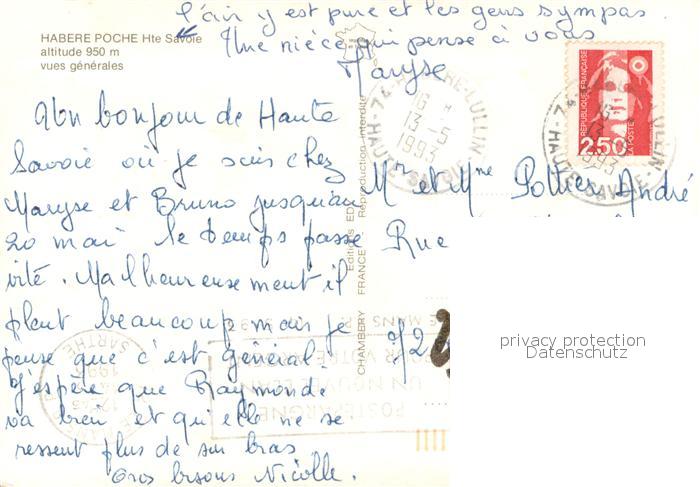 l'air y est pure et les gens sympas
Une nièce qui pense à vous
Maryse
HABERE POCHE Hte Savoie
altitude 950 m
vues générales
Un bonjour de Haute
Savoie où je suis chez
Maryse et Bruno jusqu'au
20 mai le temps passe
vite. Malheureusement il
pleut beaucoup mais je
pense que c'est général.
J'espère que Raymonde
va bien et qu'elle ne se
ressent plus de son bras
Gros bisous Nicolle.
CHAMBERY FRANCE Reproduction interdite
Editions ED
74 HABERE-LULLIN
16 H
13-5
1993
HAUTE SAVOIE
REPUBLIQUE FRANÇAISE
LA POSTE
2,50
Mr et Mme Pottier André
Rue
72
privacy protection
Datenschutz
LE MANS
POUR VOTRE
UN NOUVEL
POSTEPARGNE
SARTHE